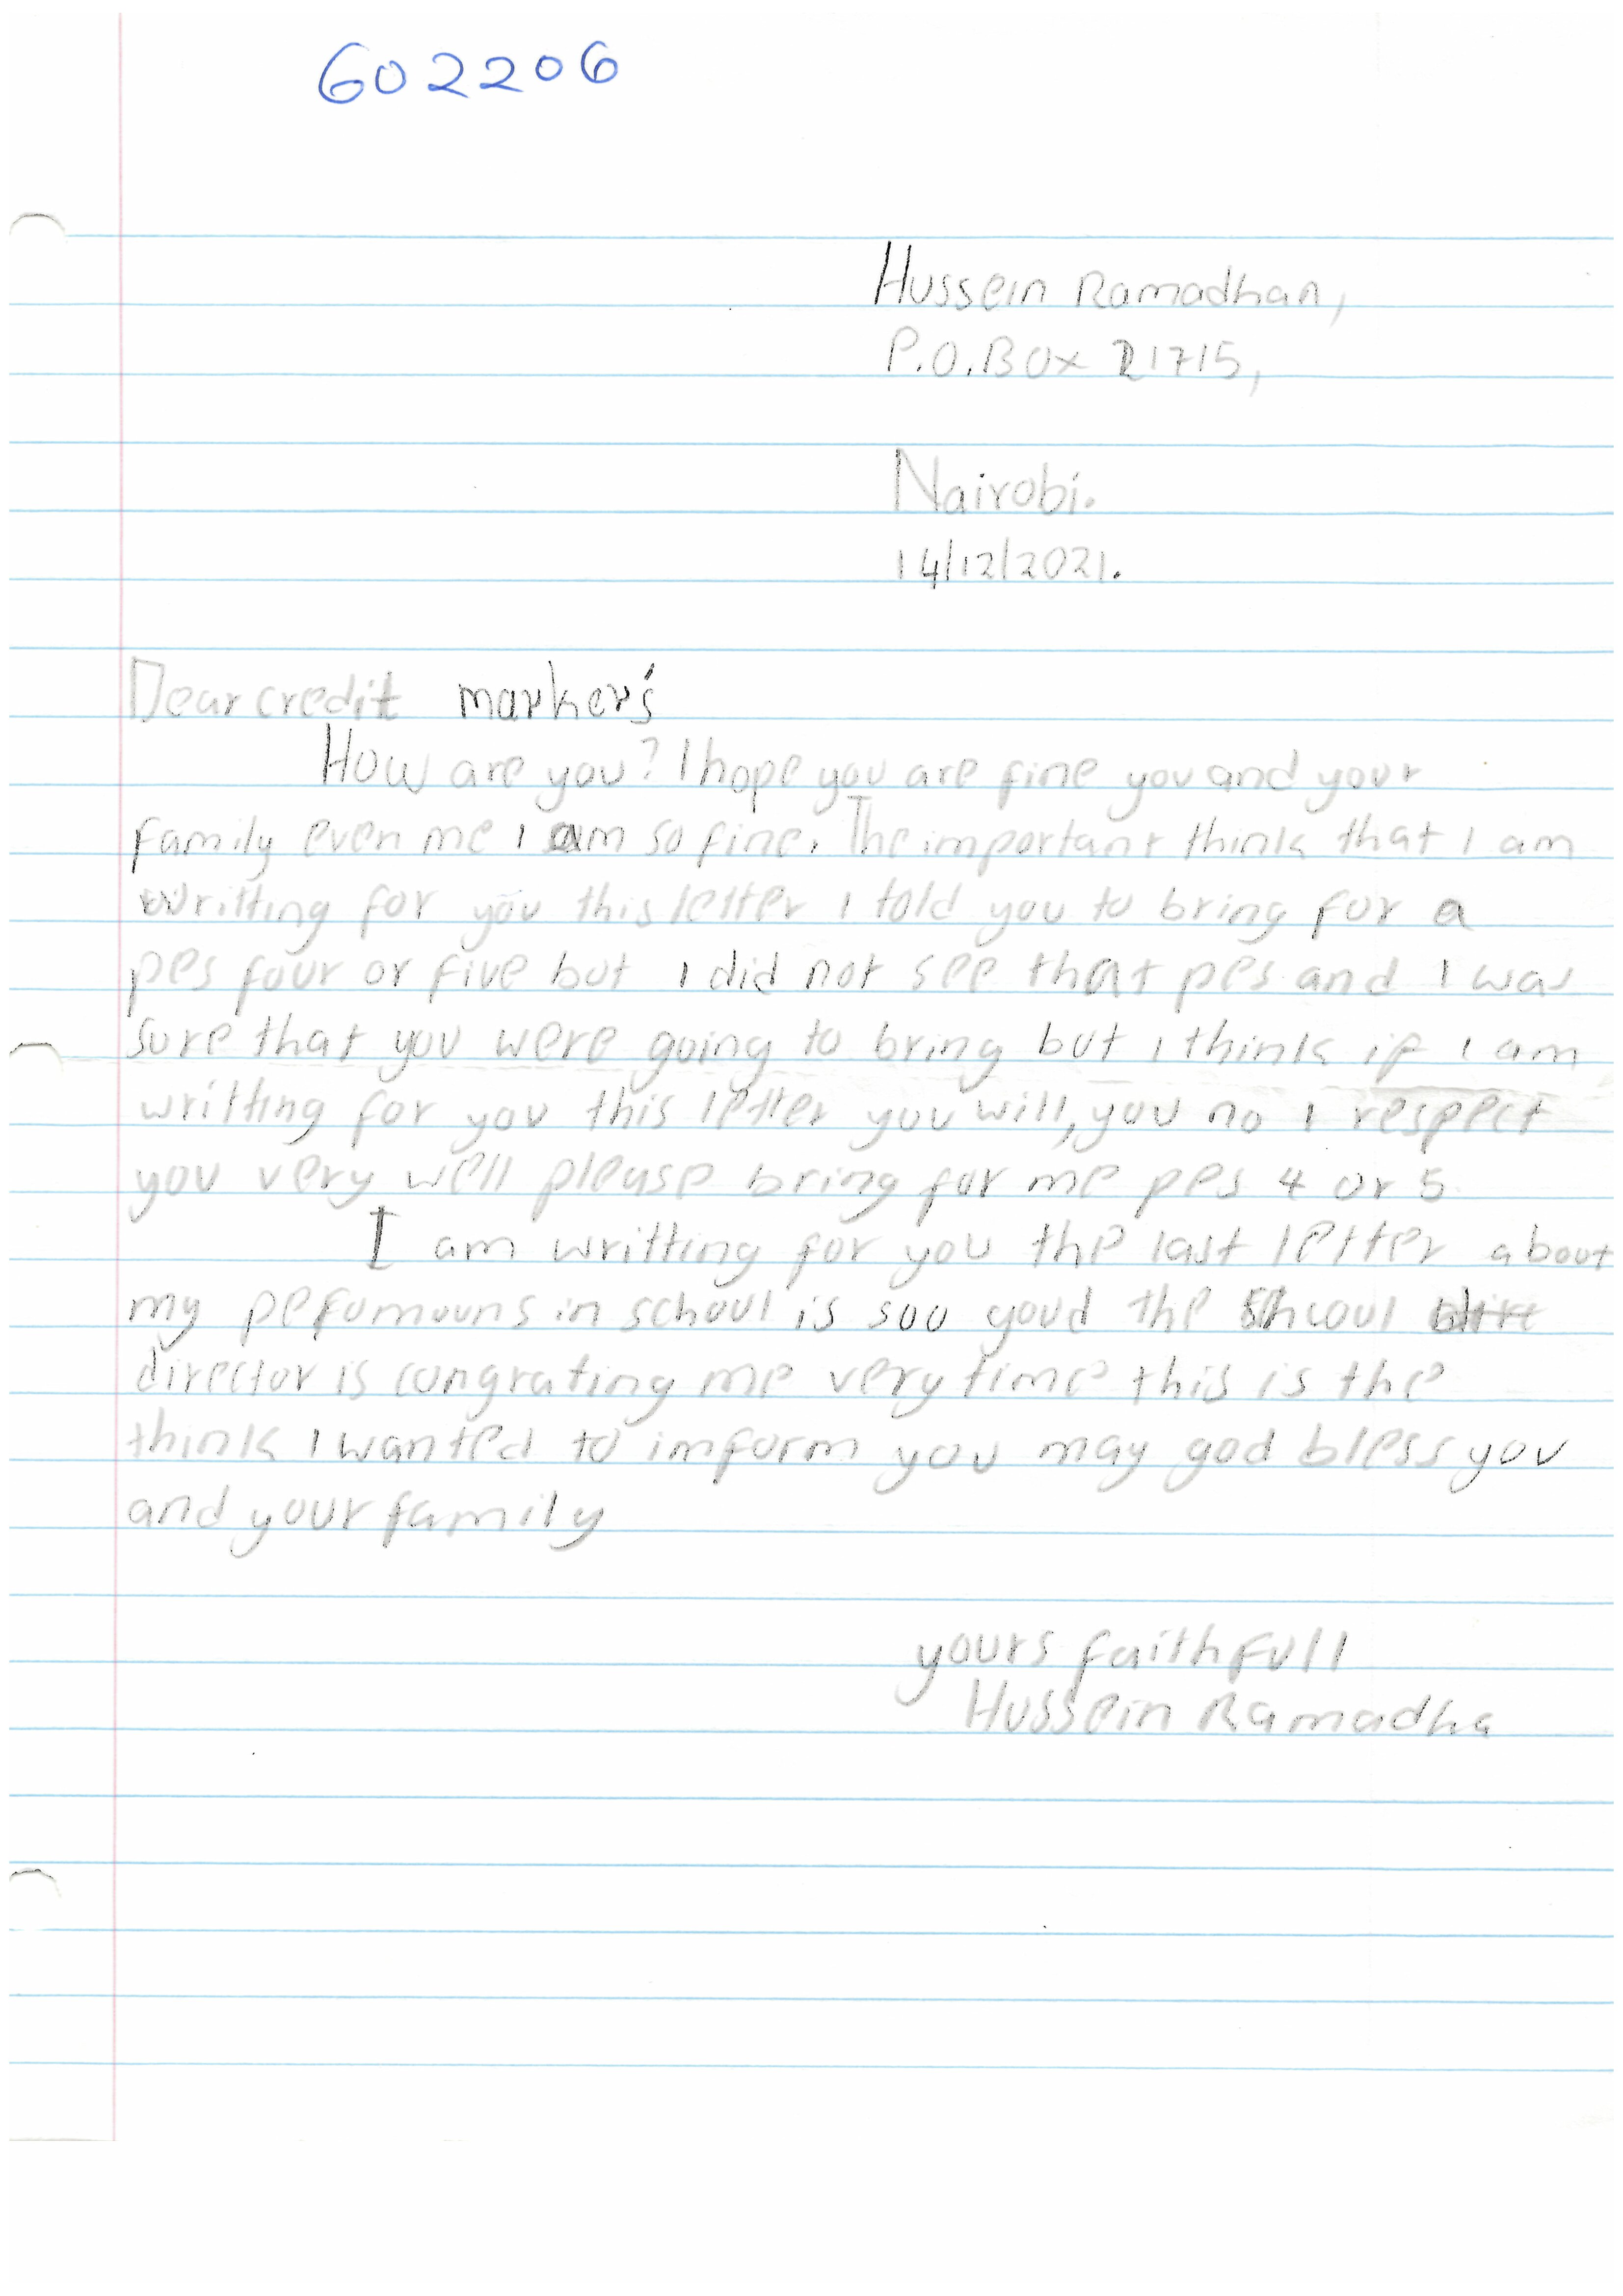 602206
Hussein Ramadhan,
P.O.Box 21715,
Nairobi.
14/12/2021.
Dear credit marker's
How are you? I hope you are fine you and your
family even me I am so fine. The important think that I am
writting for you this letter I told you to bring for a
pes four or five but I did not see that pes and I was
sure that you were going to bring but I think if I am
writting for you this letter you will, you no I respect
you very well please bring for me pes 4 or 5
I am writting for you the last letter about
my pefomouns in school is soo good the school
director is congrating me very time this is the
think I wanted to imform you may god bless you
and your family
yours faithfull
Hussein Ramadha